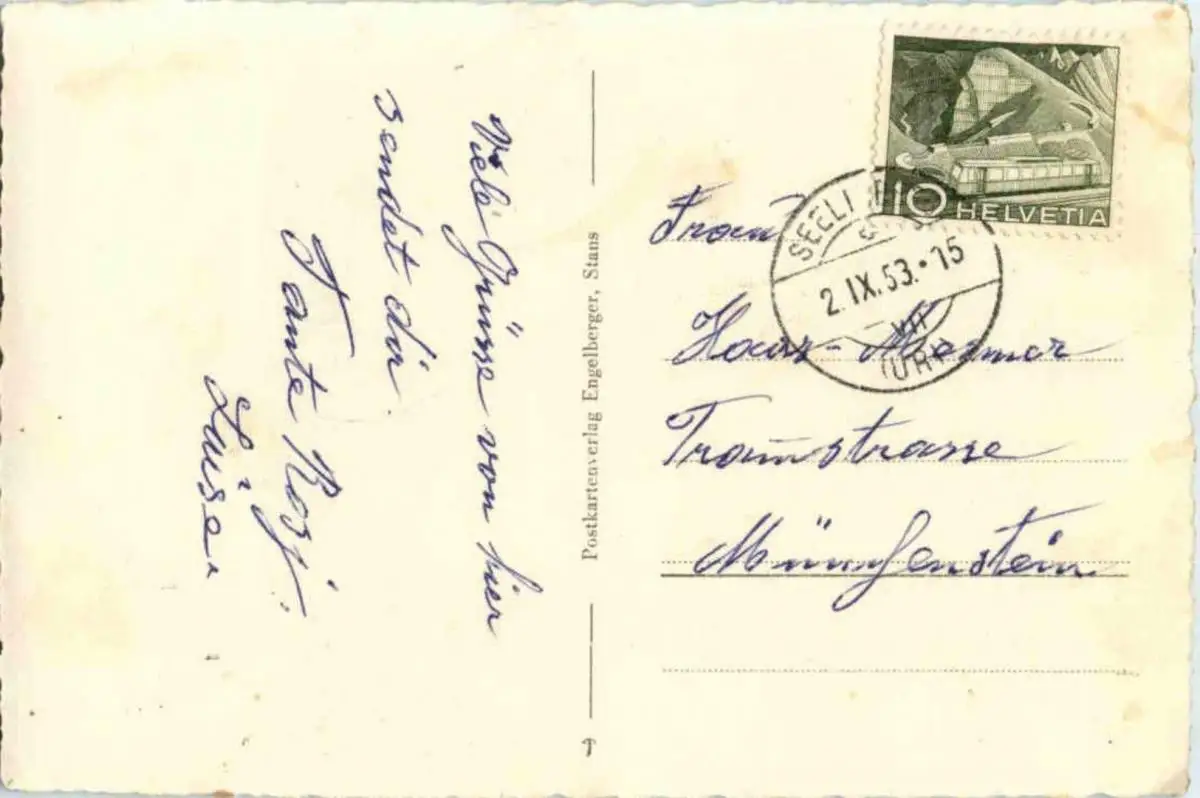 Viele Grüsse von hier
sendet dir
Tante Rosj.
Luise
Postkartenverlag Engelberger, Stans
10 HELVETIA
SEELI
2.IX.53.·15
VII
(URI)
Frau
Tramstrasse
Münchenstein